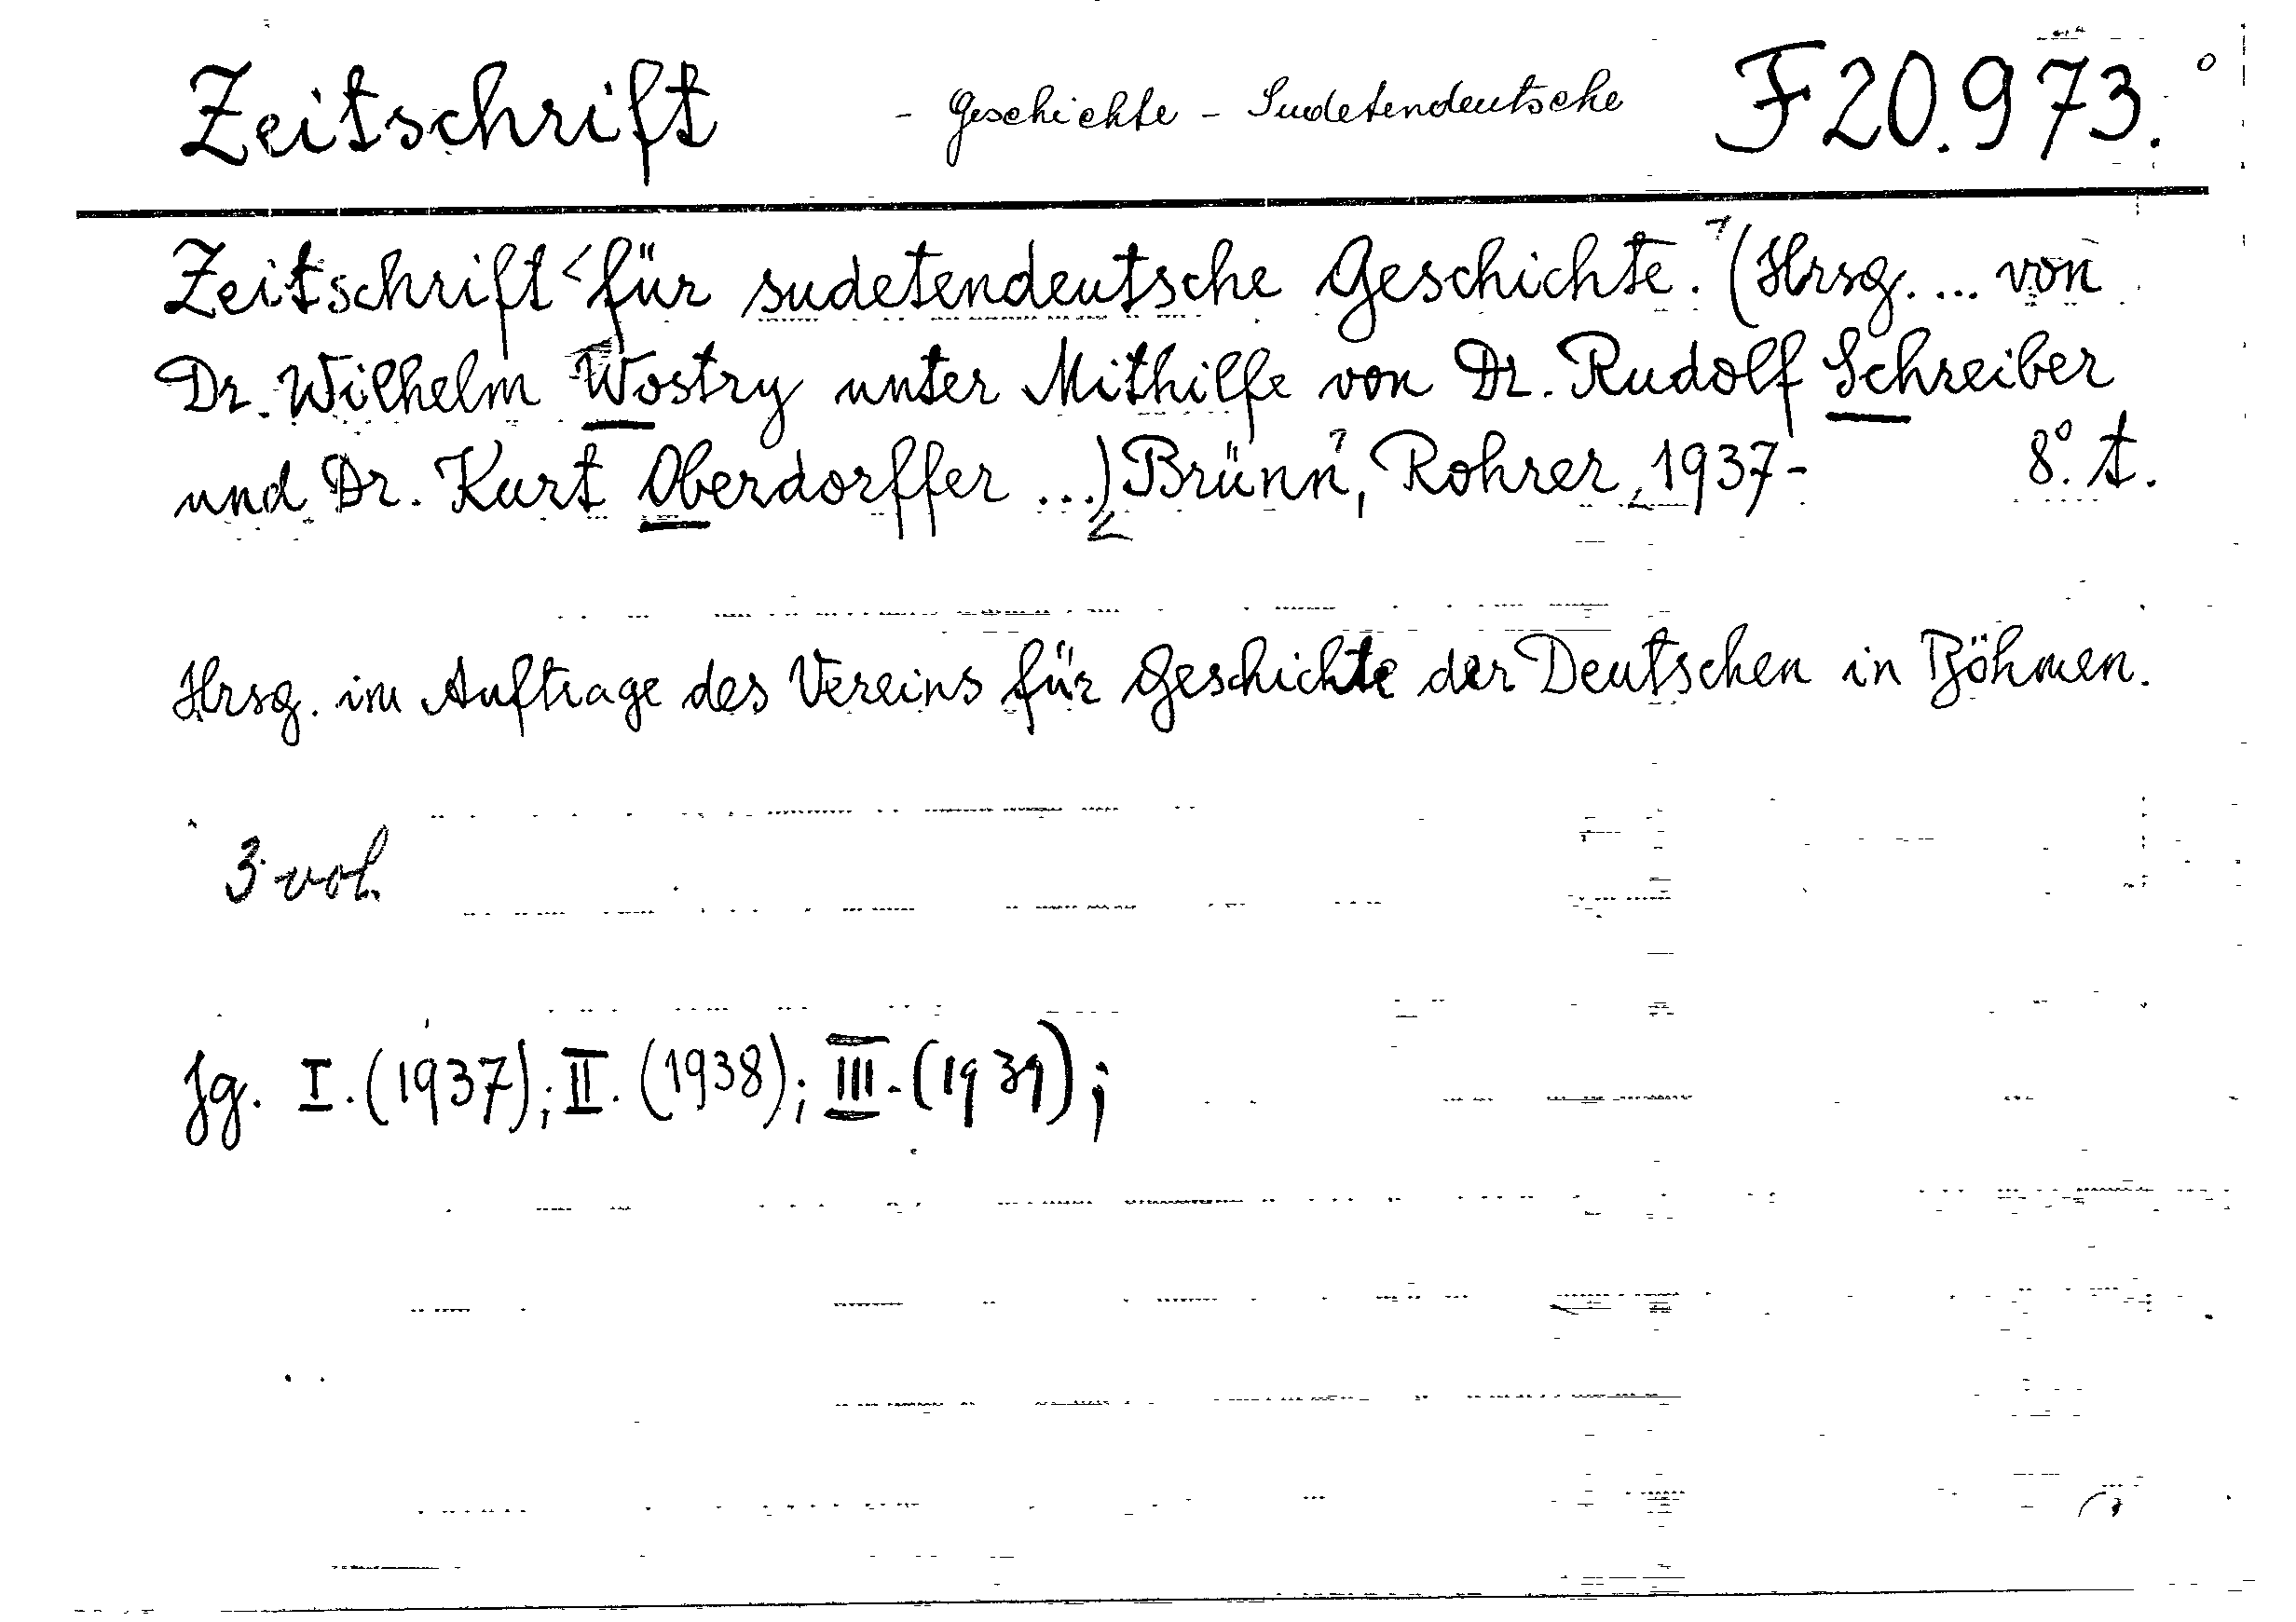 Zeitschrift - Geschichte - Sudetendeutsche F 20.973.°
Zeitschrift für sudetendeutsche Geschichte. (Hrsg. ... von
Dr. Wilhelm Wostry unter Mithilfe von Dr. Rudolf Schreiber
und Dr. Kurt Oberdorffer ...) Brünn, Rohrer, 1937- 8° t.
Hrsg. im Auftrage des Vereins für Geschichte der Deutschen in Böhmen.
3 vol.
Jg. I. (1937); II. (1938); III. (1939);